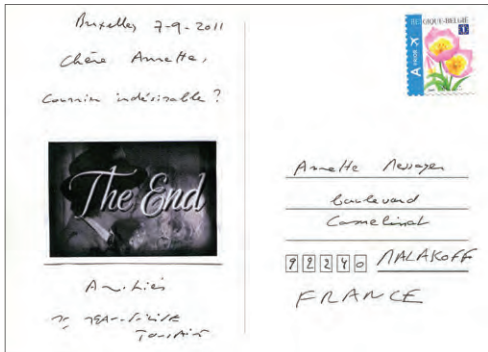 Bruxelles 7-9-2011
Chère Annette,
Courrier indésirable ?
The End
Amitiés
Toussaint
BELGIQUE-BELGIË
1
A PRIOR
Annette Messager
boulevard
Camelinat
92240 MALAKOFF
FRANCE